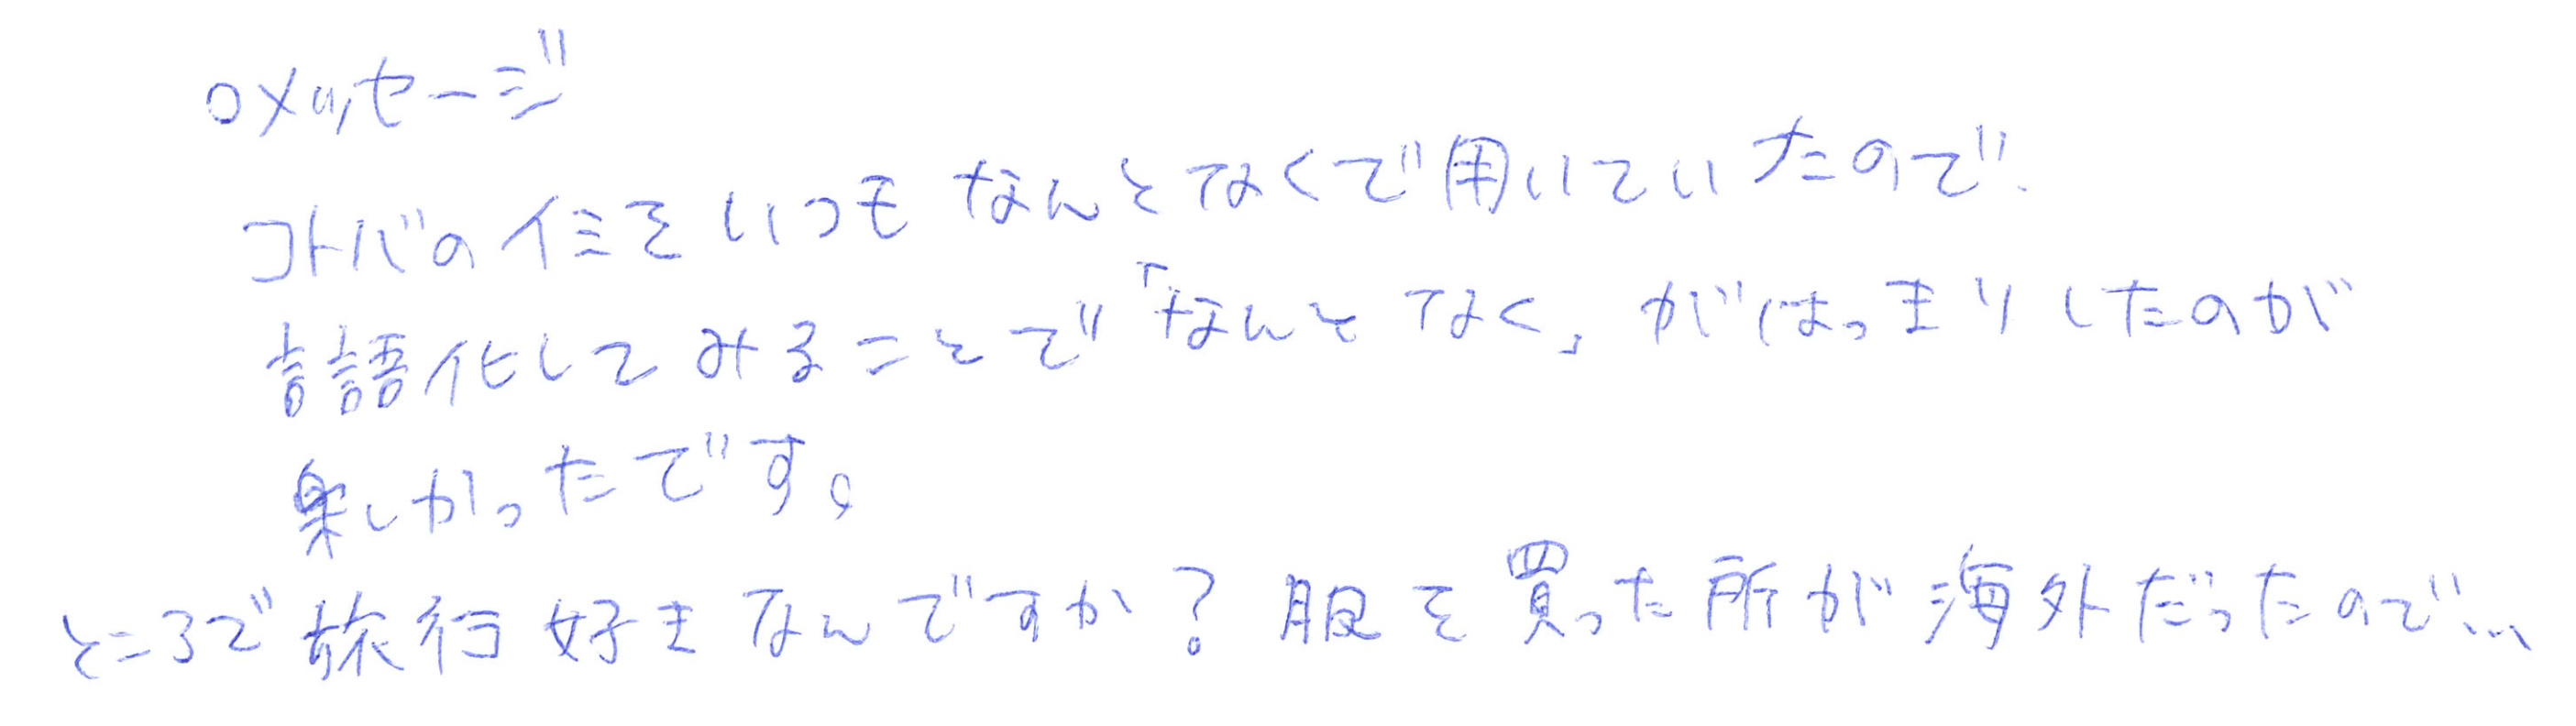 ○メッセージ
コトバのイミをいつもなんとなくで用いていたので、
言語化してみることで「なんとなく」がはっきりしたのが
楽しかったです。
ところで旅行好きなんですか?服を買った所が海外だったので…